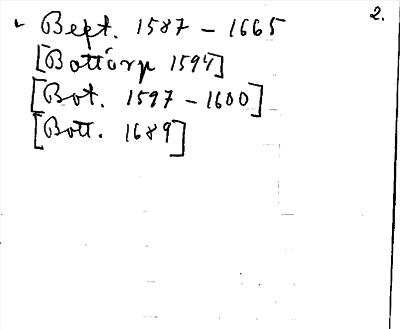 2.
Bept. 1587 – 1665
[Bottorp 1594]
[Bot. 1597 – 1600]
[Bott. 1689]